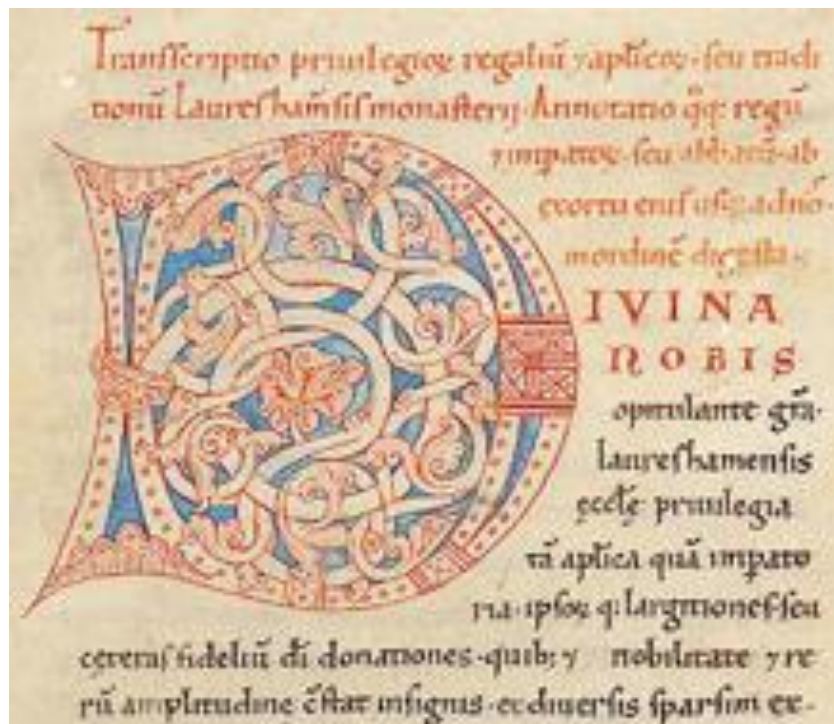 Transscriptio priuilegioꝝ regaliū ⁊ aplicoꝝ · seu tradi
tionū Laureshāmsis monasterij · Annotatio q̄q; regū
⁊ impatoꝝ · seu abbatū · ab
exortu eius usq; ad nr̄ō
in ordinē digesta ·
IVINA
NOBIS
opitulante gr̄a ·
laureshamensis
eccl̄ę priuilegia
tā aplica quā impato
ria · ipsoꝝ q; largitiones · seu
cęteras fideliū di donationes · quib; ⁊ nobilitate ⁊ re
rū amplitudine c̄stat insignis · ex diuersis sparsim ex-